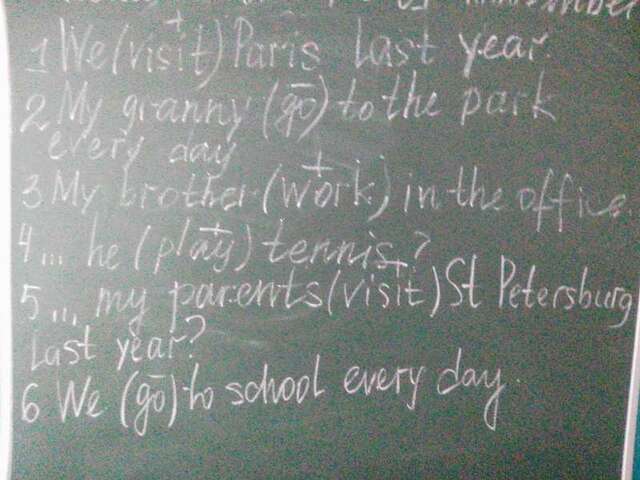 1 We (visit) Paris last year.
2 My granny (go) to the park
every day
3 My brother (work) in the office.
4 ... he (play) tennis?
5 ... my parents (visit) St Petersburg
last year?
6 We (go) to school every day.